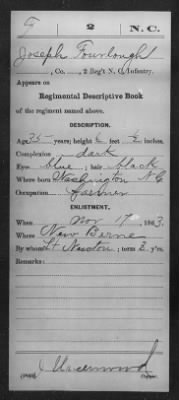 F 2 N.C.
Joseph Fourlough
, Co. , 2 Reg't N. C. Infantry.
Appears on
Regimental Descriptive Book
of the regiment named above.
DESCRIPTION.
Age 35 years; height 6 feet ½ inches.
Complexion dark
Eyes blue; hair black
Where born Washington N.C.
Occupation farmer
ENLISTMENT.
When Nov 17, 1863.
Where New Berne
By whom Lt Newton; term 3 y'rs.
Remarks:
Underwood
Copyist.